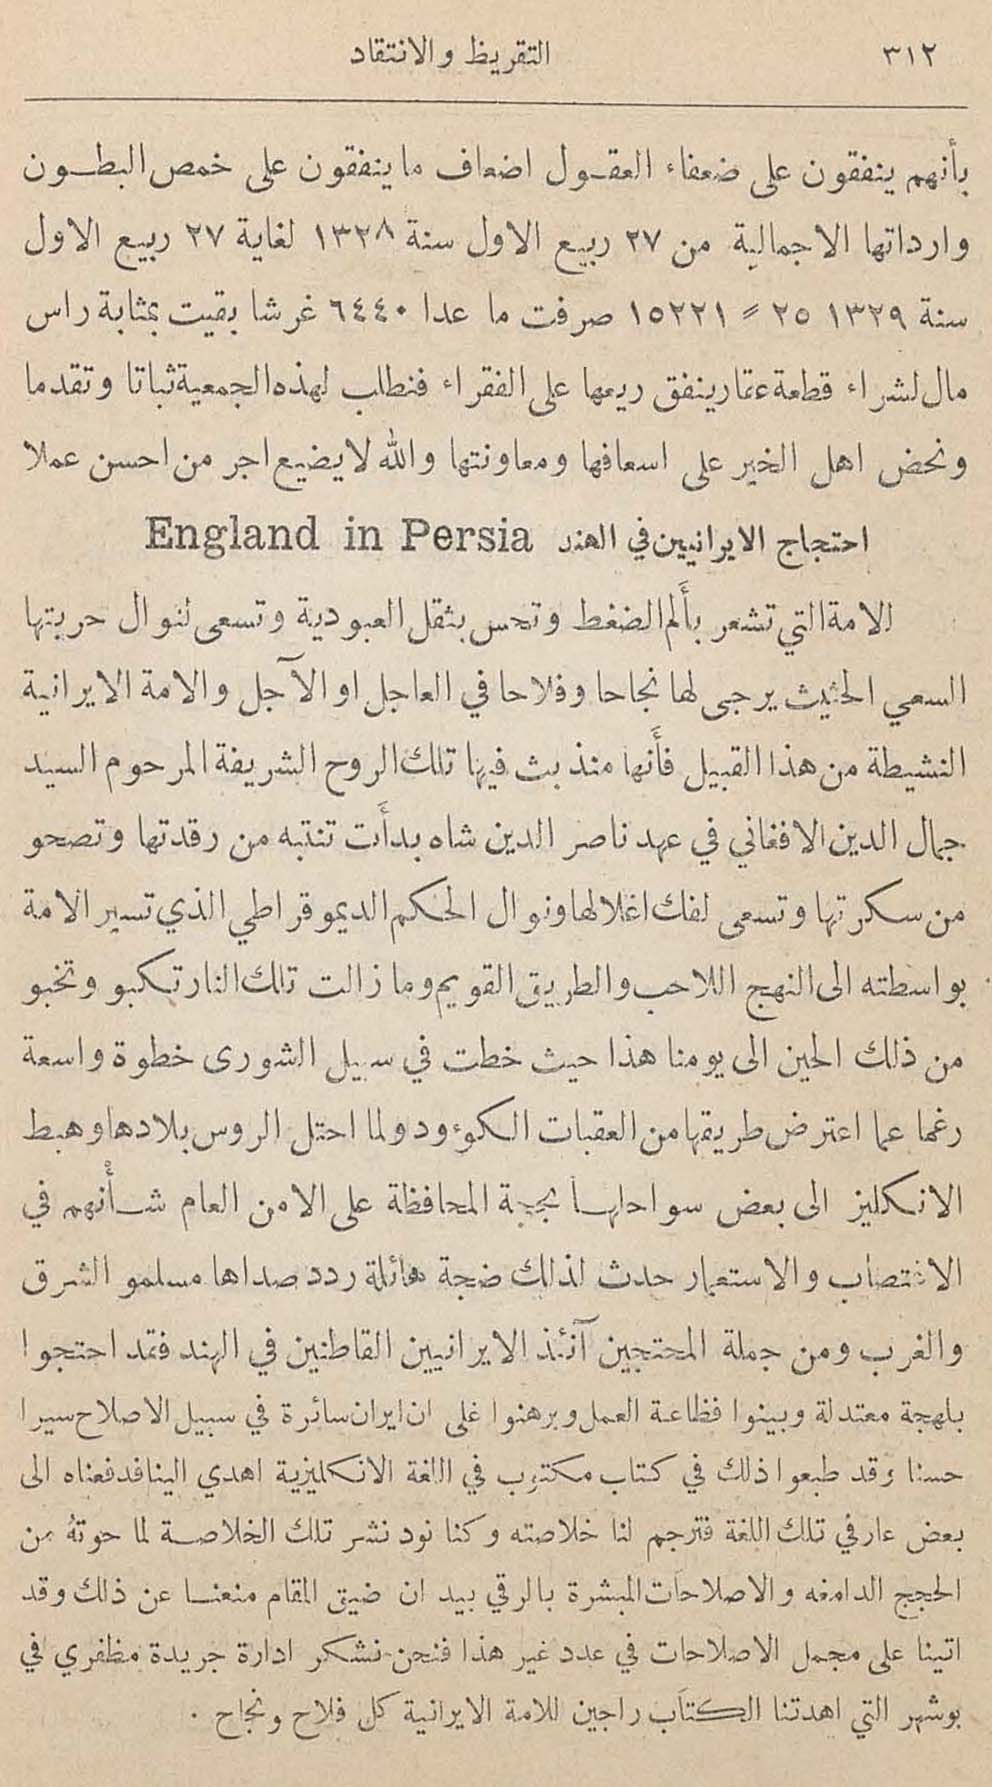 ٣١٢ التقريظ والانتقاد
بأنهم ينفقون على ضعفاء العقول اضعاف ما ينفقون على خمص البطون
وارداتها الاجمالية من ٢٧ ربيع الاول سنة ١٣٢٨ لغاية ٢٧ ربيع الاول
سنة ١٣٢٩ ٢٥ ٬٬ ١٥٢٢١ صرفت ما عدا ٦٤٤٠ غرشا بقيت بمثابة راس
مال لشراء قطعة عقار ينفق ريعها على الفقراء فنطلب لهذه الجمعية ثباتا وتقدما
ونحض اهل الخير على اسعافها ومعاونتها والله لا يضيع اجر من احسن عملا
احتجاج الايرانيين في الهند England in Persia
الامة التي تشعر بألم الضغط وتحس بثقل العبودية وتسعى لنوال حريتها
السعي الحثيث يرجى لها نجاحا وفلاحا في العاجل او الآجل والامة الايرانية
النشيطة من هذا القبيل فأنها منذ بث فيها تلك الروح الشريفة المرحوم السيد
جمال الدين الافغاني في عهد ناصر الدين شاه بدأت تنتبه من رقدتها وتصحو
من سكرتها وتسعى لفك اغلالها ونوال الحكم الديموقراطي الذي تسير الامة
بواسطته الى النهج اللاحب والطريق القويم وما زالت تلك النار تكبو وتخبو
من ذلك الحين الى يومنا هذا حيث خطت في سبيل الشورى خطوة واسعة
رغما عما اعترض طريقها من العقبات الكوءود ولما احتل الروس بلادها وهبط
الانكليز الى بعض سواحلها بحجة المحافظة على الامن العام شأنهم في
الاغتصاب والاستعمار حدث لذلك ضجة هائلة ردد صداها مسلمو الشرق
والغرب ومن جملة المحتجين آنئذ الايرانيين القاطنين في الهند فقد احتجوا
بلهجة معتدلة وبينوا فظاعة العمل وبرهنوا غلى ان ايران سائرة في سبيل الاصلاح سيرا
حسنا وقد طبعوا ذلك في كتاب مكتوب في اللغة الانكليزية اهدي الينا فدفعناه الى
بعض عارفي تلك اللغة فترجم لنا خلاصته وكنا نود نشر تلك الخلاصة لما حوته من
الحجج الدامغه والاصلاحات المبشرة بالرقي بيد ان ضيق المقام منعنا عن ذلك وقد
اتينا على مجمل الاصلاحات في عدد غير هذا فنحن نشكر ادارة جريدة مظفري في
بوشهر التي اهدتنا الكتاب راجين للامة الايرانية كل فلاح ونجاح .